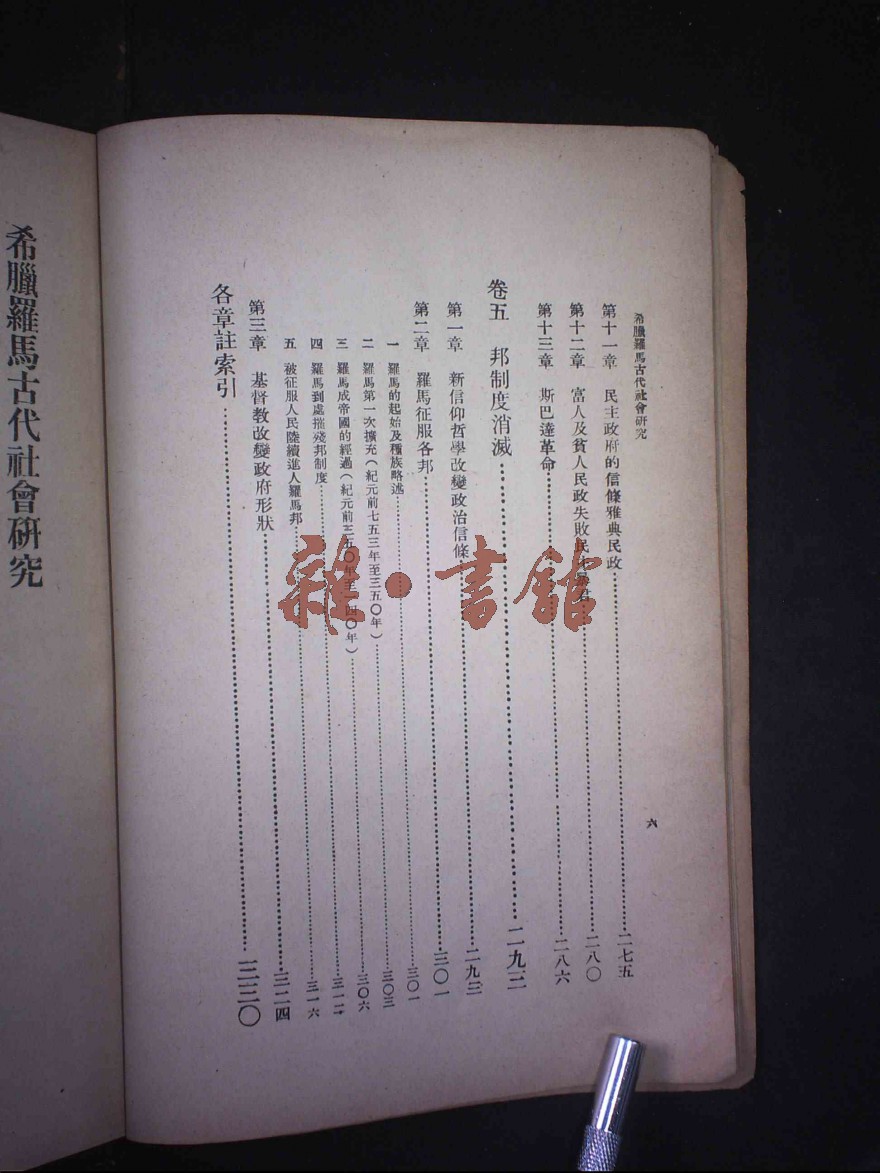 希臘羅馬古代社會研究
六
第十一章 民主政府的信條雅典民政……二七五
第十二章 富人及貧人民政失敗民……二八〇
第十三章 斯巴達革命……二八六
卷五 邦制度消滅……二九三
第一章 新信仰哲學改變政治信條……二九三
第二章 羅馬征服各邦……三〇一
一 羅馬的起始及種族略述……三〇一
二 羅馬第一次擴充(紀元前七五三年至三五〇年)……三〇三
三 羅馬成帝國的經過(紀元前三五〇年至四〇年)……三〇六
四 羅馬到處摧殘邦制度……三一二
五 被征服人民陸續進人羅馬邦……三一六
第三章 基督教改變政府形狀……三二四
各章註索引……三三〇
希臘羅馬古代社會研究
雜·書館